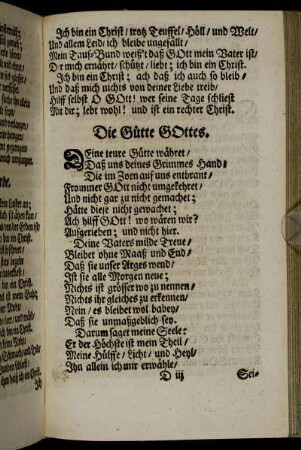 Ich bin ein Christ / trotz Teuffel / Höll / und Welt /
Und allem Leid / ich bleibe ungefällt /
Mein Tauf-Bund weiß't daß GOtt mein Vater ist /
Der mich ernährt / schützt / liebt; ich bin ein Christ.
Ich bin ein Christ; ach daß ich auch so bleib /
Und daß mich nichts von deiner Liebe treib /
Hilff selbst O GOtt! wer seine Tage schliest
Mit dir; lebt wohl! und ist ein rechter Christ.
Die Gütte GOttes.
DEine teure Gütte währet /
Daß uns deines Grimmes Hand /
Die im Zorn auf uns entbrant /
Frommer GOtt nicht umgekehret /
Und nicht gar zu nicht gemachet;
Hätte diese nicht gewachet;
Ach hilff GOtt! wo wären wir?
Aufgerieben; und nicht hier.
Deine Vaters milde Treue /
Bleibet ohne Maaß und End /
Daß sie unser Arges wend /
Ist sie alle Morgen neue;
Nichts ist grösser wo zu nennen /
Nichts ihr gleiches zu erkennen /
Nein / es bleibet wol dabey /
Daß sie unmaßgeblich sey.
Darum saget meine Seele:
Er der Höchste ist mein Theil /
Meine Hülffe / Licht / und Heyl /
Ihn allein ich mir erwähle /
D iij
Sei-